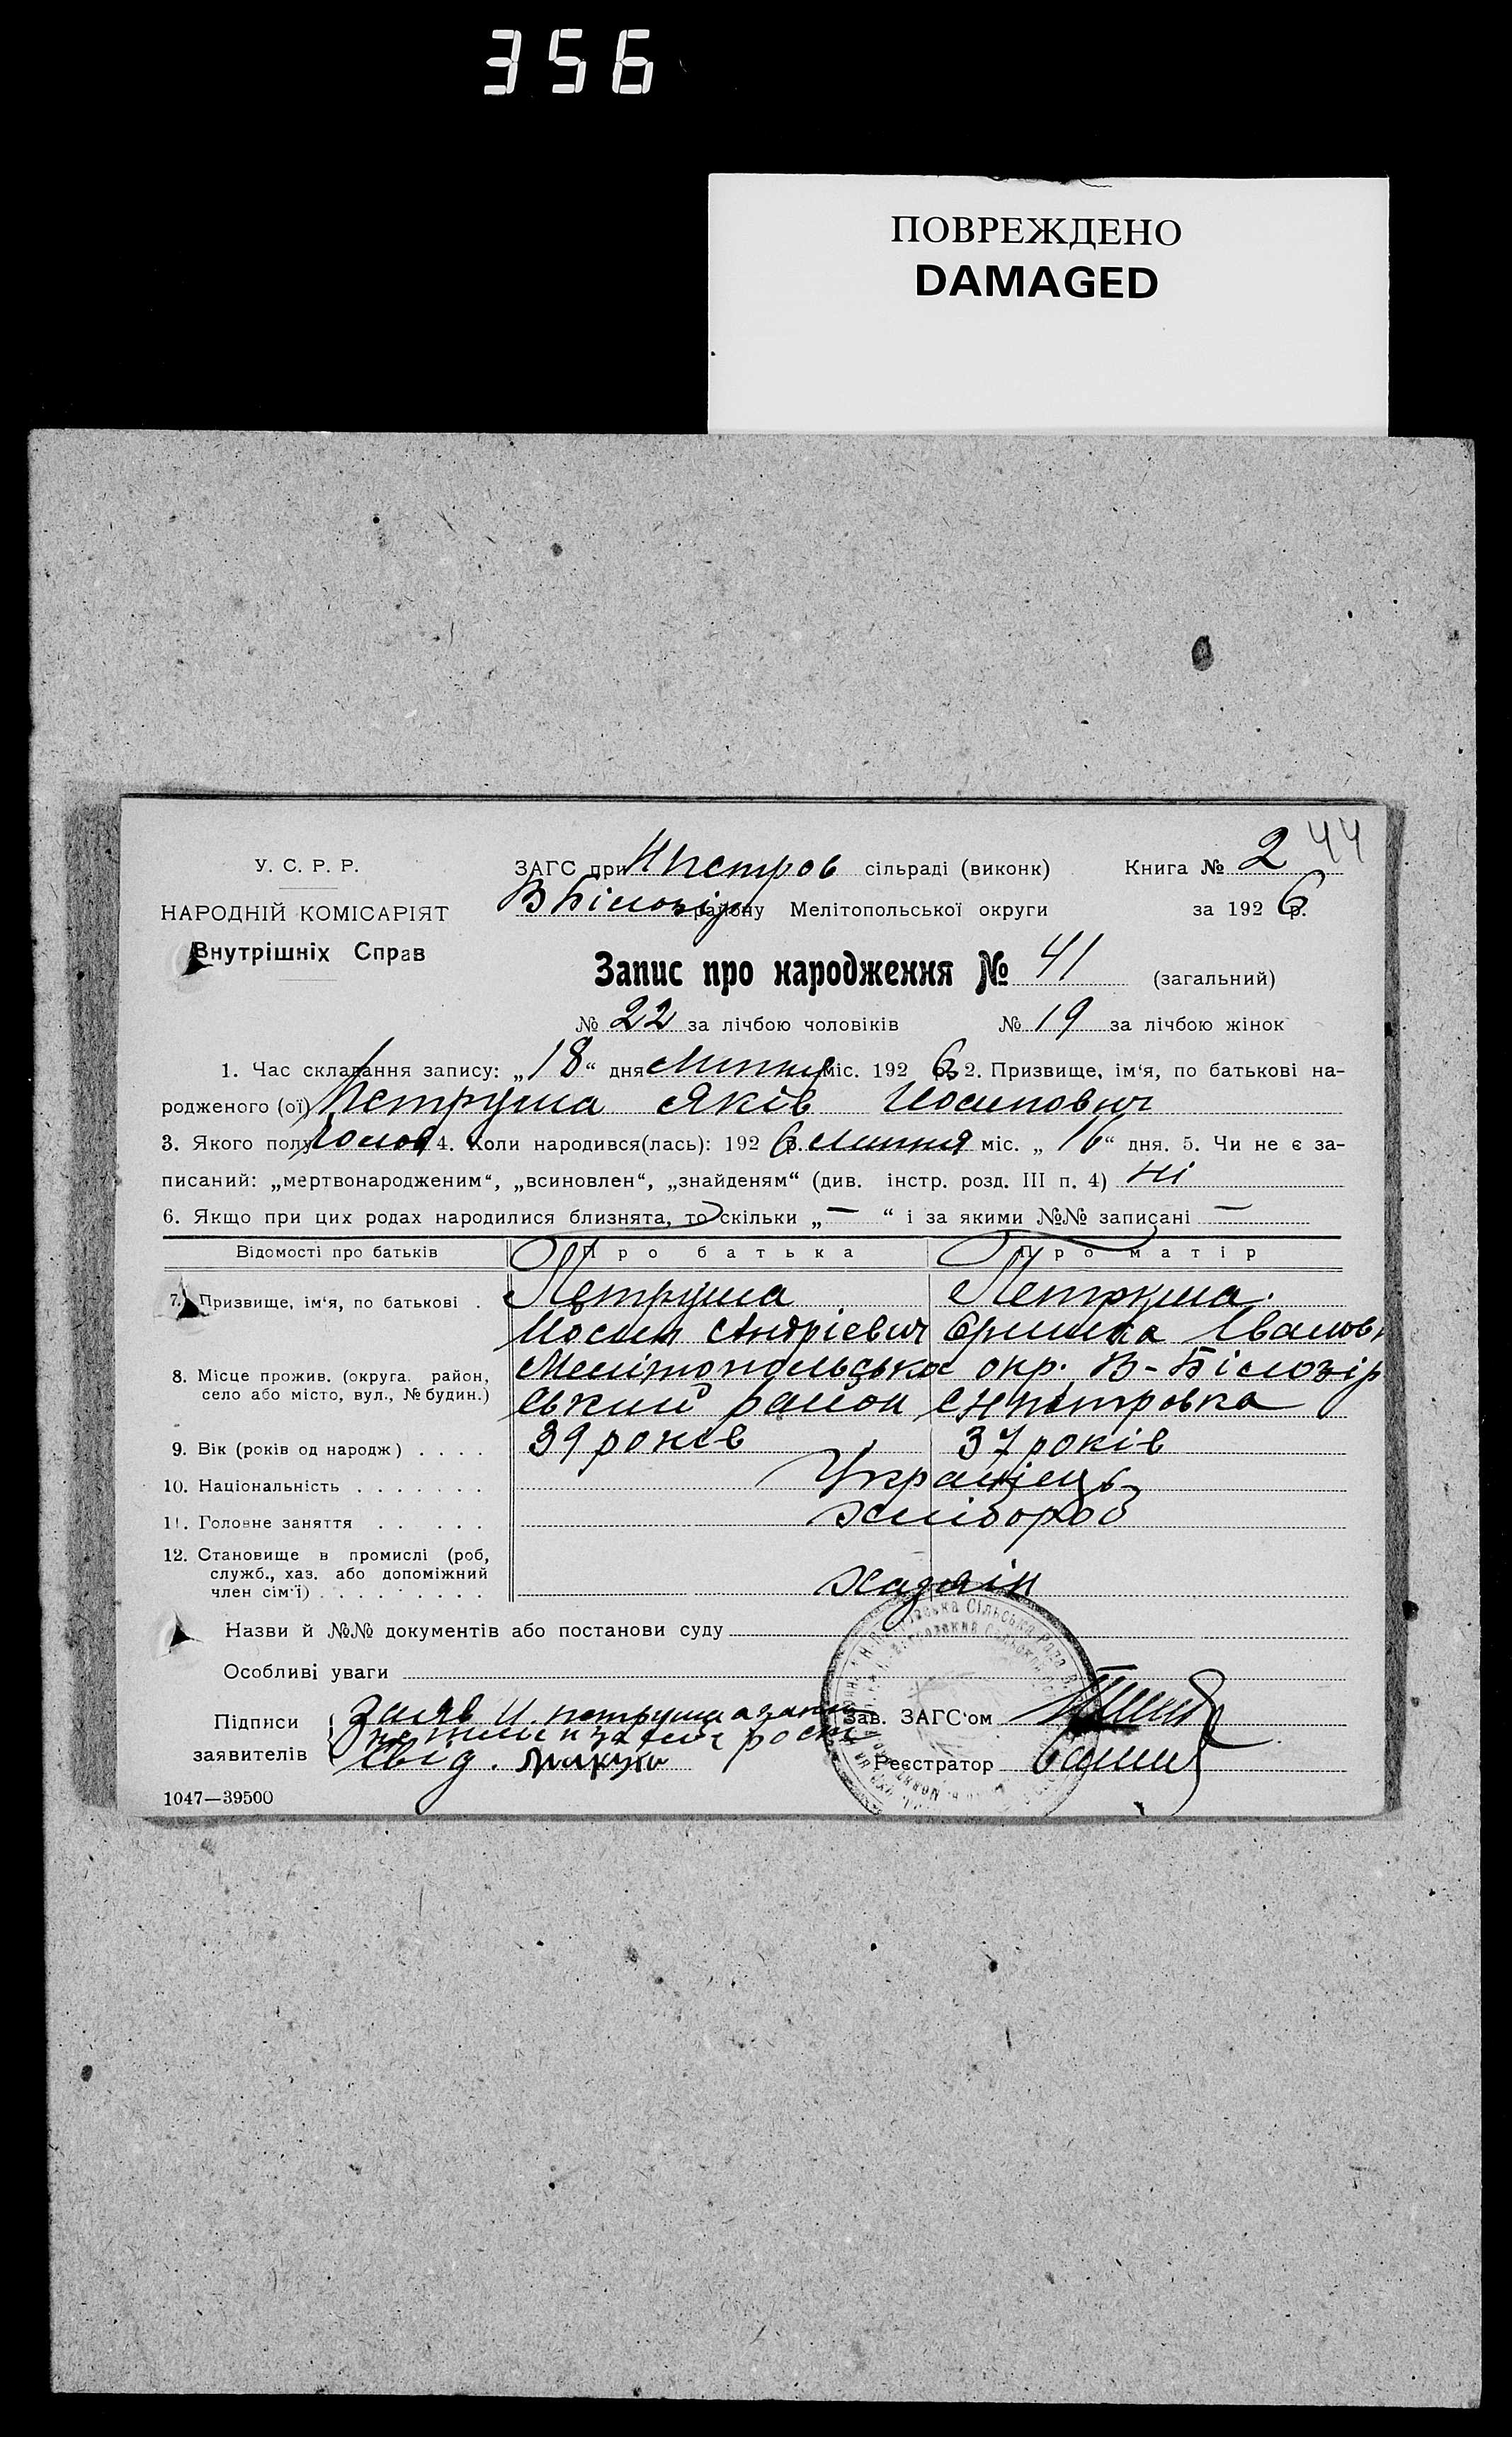 356
ПОВРЕЖДЕНО
DAMAGED
44
У. С. Р. Р.
НАРОДНІЙ КОМІСАРІЯТ
Внутрішніх Справ
ЗАГС при Нпетров сільраді (виконк) Книга № 2
В Білозір району Мелітопольської округи за 1926 р.
Запис про народження № 41 (загальний)
№ 22 за лічбою чоловіків № 19 за лічбою жінок
1. Час складання запису: „18“ дня Липня міс. 1926 р. 2. Призвище, ім‘я, по батькові на-
родженого (ої) Петруша Яків Иосипович
3. Якого полу чолов 4. Коли народився(лась): 1926 р. Липня міс. „16“ дня. 5. Чи не є за-
писаний: „мертвонародженим“, „всиновлен“, „знайденям“ (див. інстр. розд. III п. 4) Ні
6. Якщо при цих родах народилися близнята, то скільки „—“ і за якими №№ записані —
Відомості про батьків Про батька Про матір
7. Призвище, ім‘я, по батькові . Петруша Петруша
Иосип Андріевич Оришка Іванов
8. Місце прожив. (округа. район, село або місто, вул., № будин.) Мелітопольська окр. В-Білозір
ський район с Нпетровка
9. Вік (років од народж) . . . . 39 років 37 років
10. Національність . . . . . . . Українець
11. Головне заняття . . . . . . хлібороб
12. Становище в промислі (роб,
служб., хаз. або допоміжний
член сім‘ї) . . . . . . . . хазяін
Назви й №№ документів або постанови суду
Особливі уваги
Підписи заявителів Заяв И. петруша а за
рос
Свід.
Зав. ЗАГС‘ом
Реєстратор
1047—39500